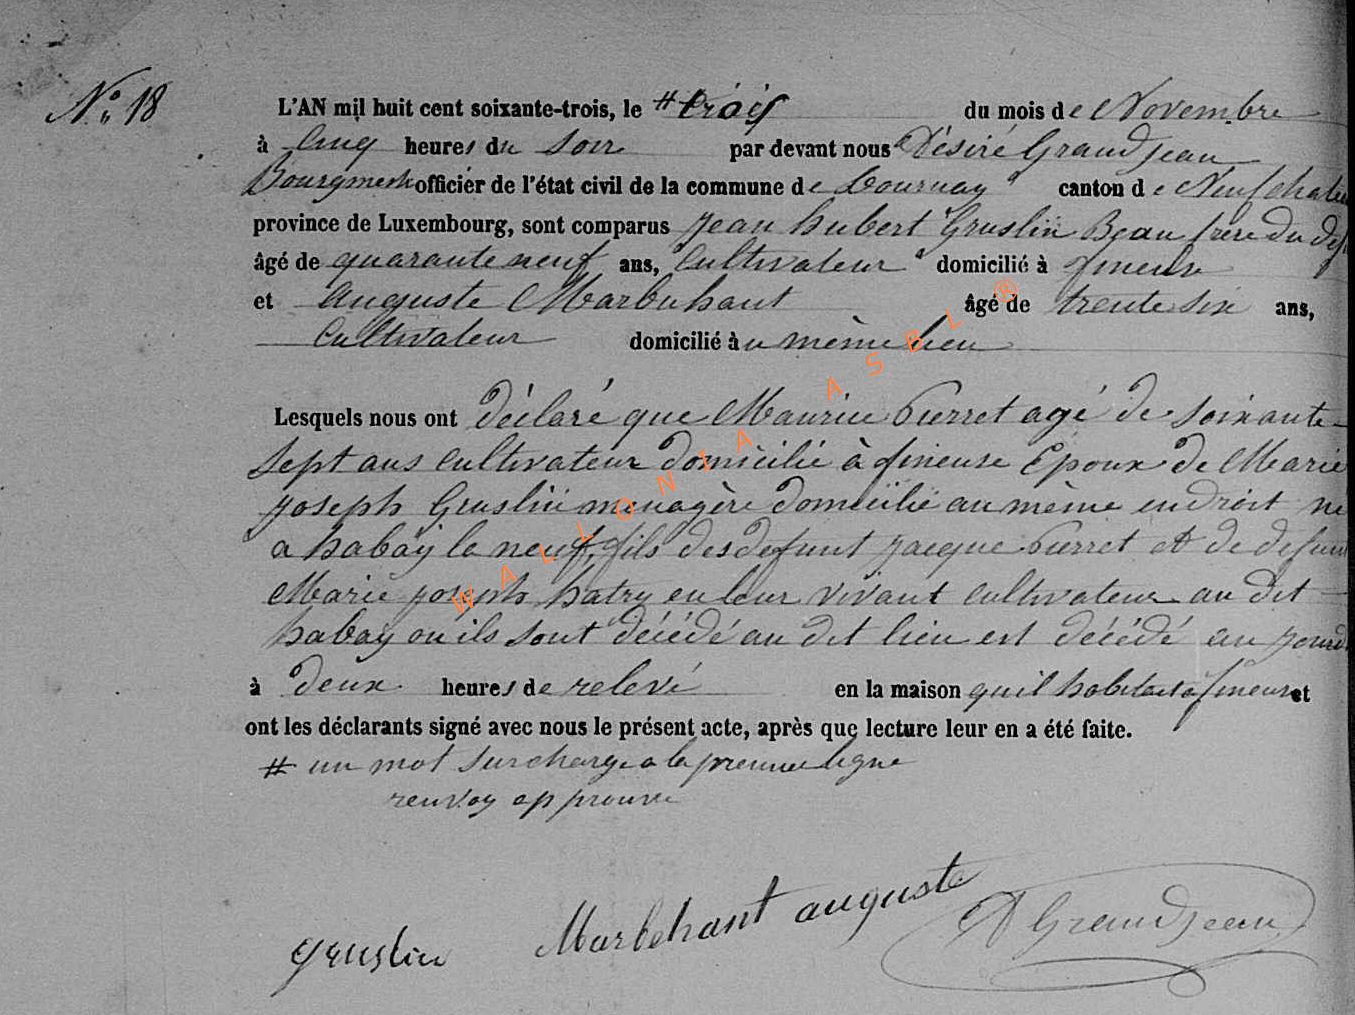 N° 18
L'AN mil huit cent soixante-trois, le # trois du mois de Novembre
à Cinq heures du Soir par devant nous Désiré Grandjean
Bourgmestre officier de l'état civil de la commune de Tournay canton de Neufchateau
province de Luxembourg, sont comparus Jean hubert Gruslin Beau frère du def
âgé de quarante neuf ans, Cultivateur domicilié à fineuse
et Auguste Marbehant âgé de trente six ans,
Cultivateur domicilié au même lieu
Lesquels nous ont déclaré que Maurice Pierret agé de soixante
Sept ans Cultivateur domicilié à fineuse Epoux de Marie
joseph Gruslin menagère domicilié au même endroit né
a habay le neuf, fils des defunt jacque Pierret et de defunt
Marie joseph hatry en leur vivant cultivateur au dit
habay ou ils sont décédé au dit lieu est décédé au jourd
à deux heures de relevé en la maison qu'il habitait a fineuse et
ont les déclarants signé avec nous le présent acte, après que lecture leur en a été faite.
# un mot surchargé a la premiere ligne
renvoy approuvé
Gruslin Marbehant auguste D Grandjean
WALLONIA ASBL ®